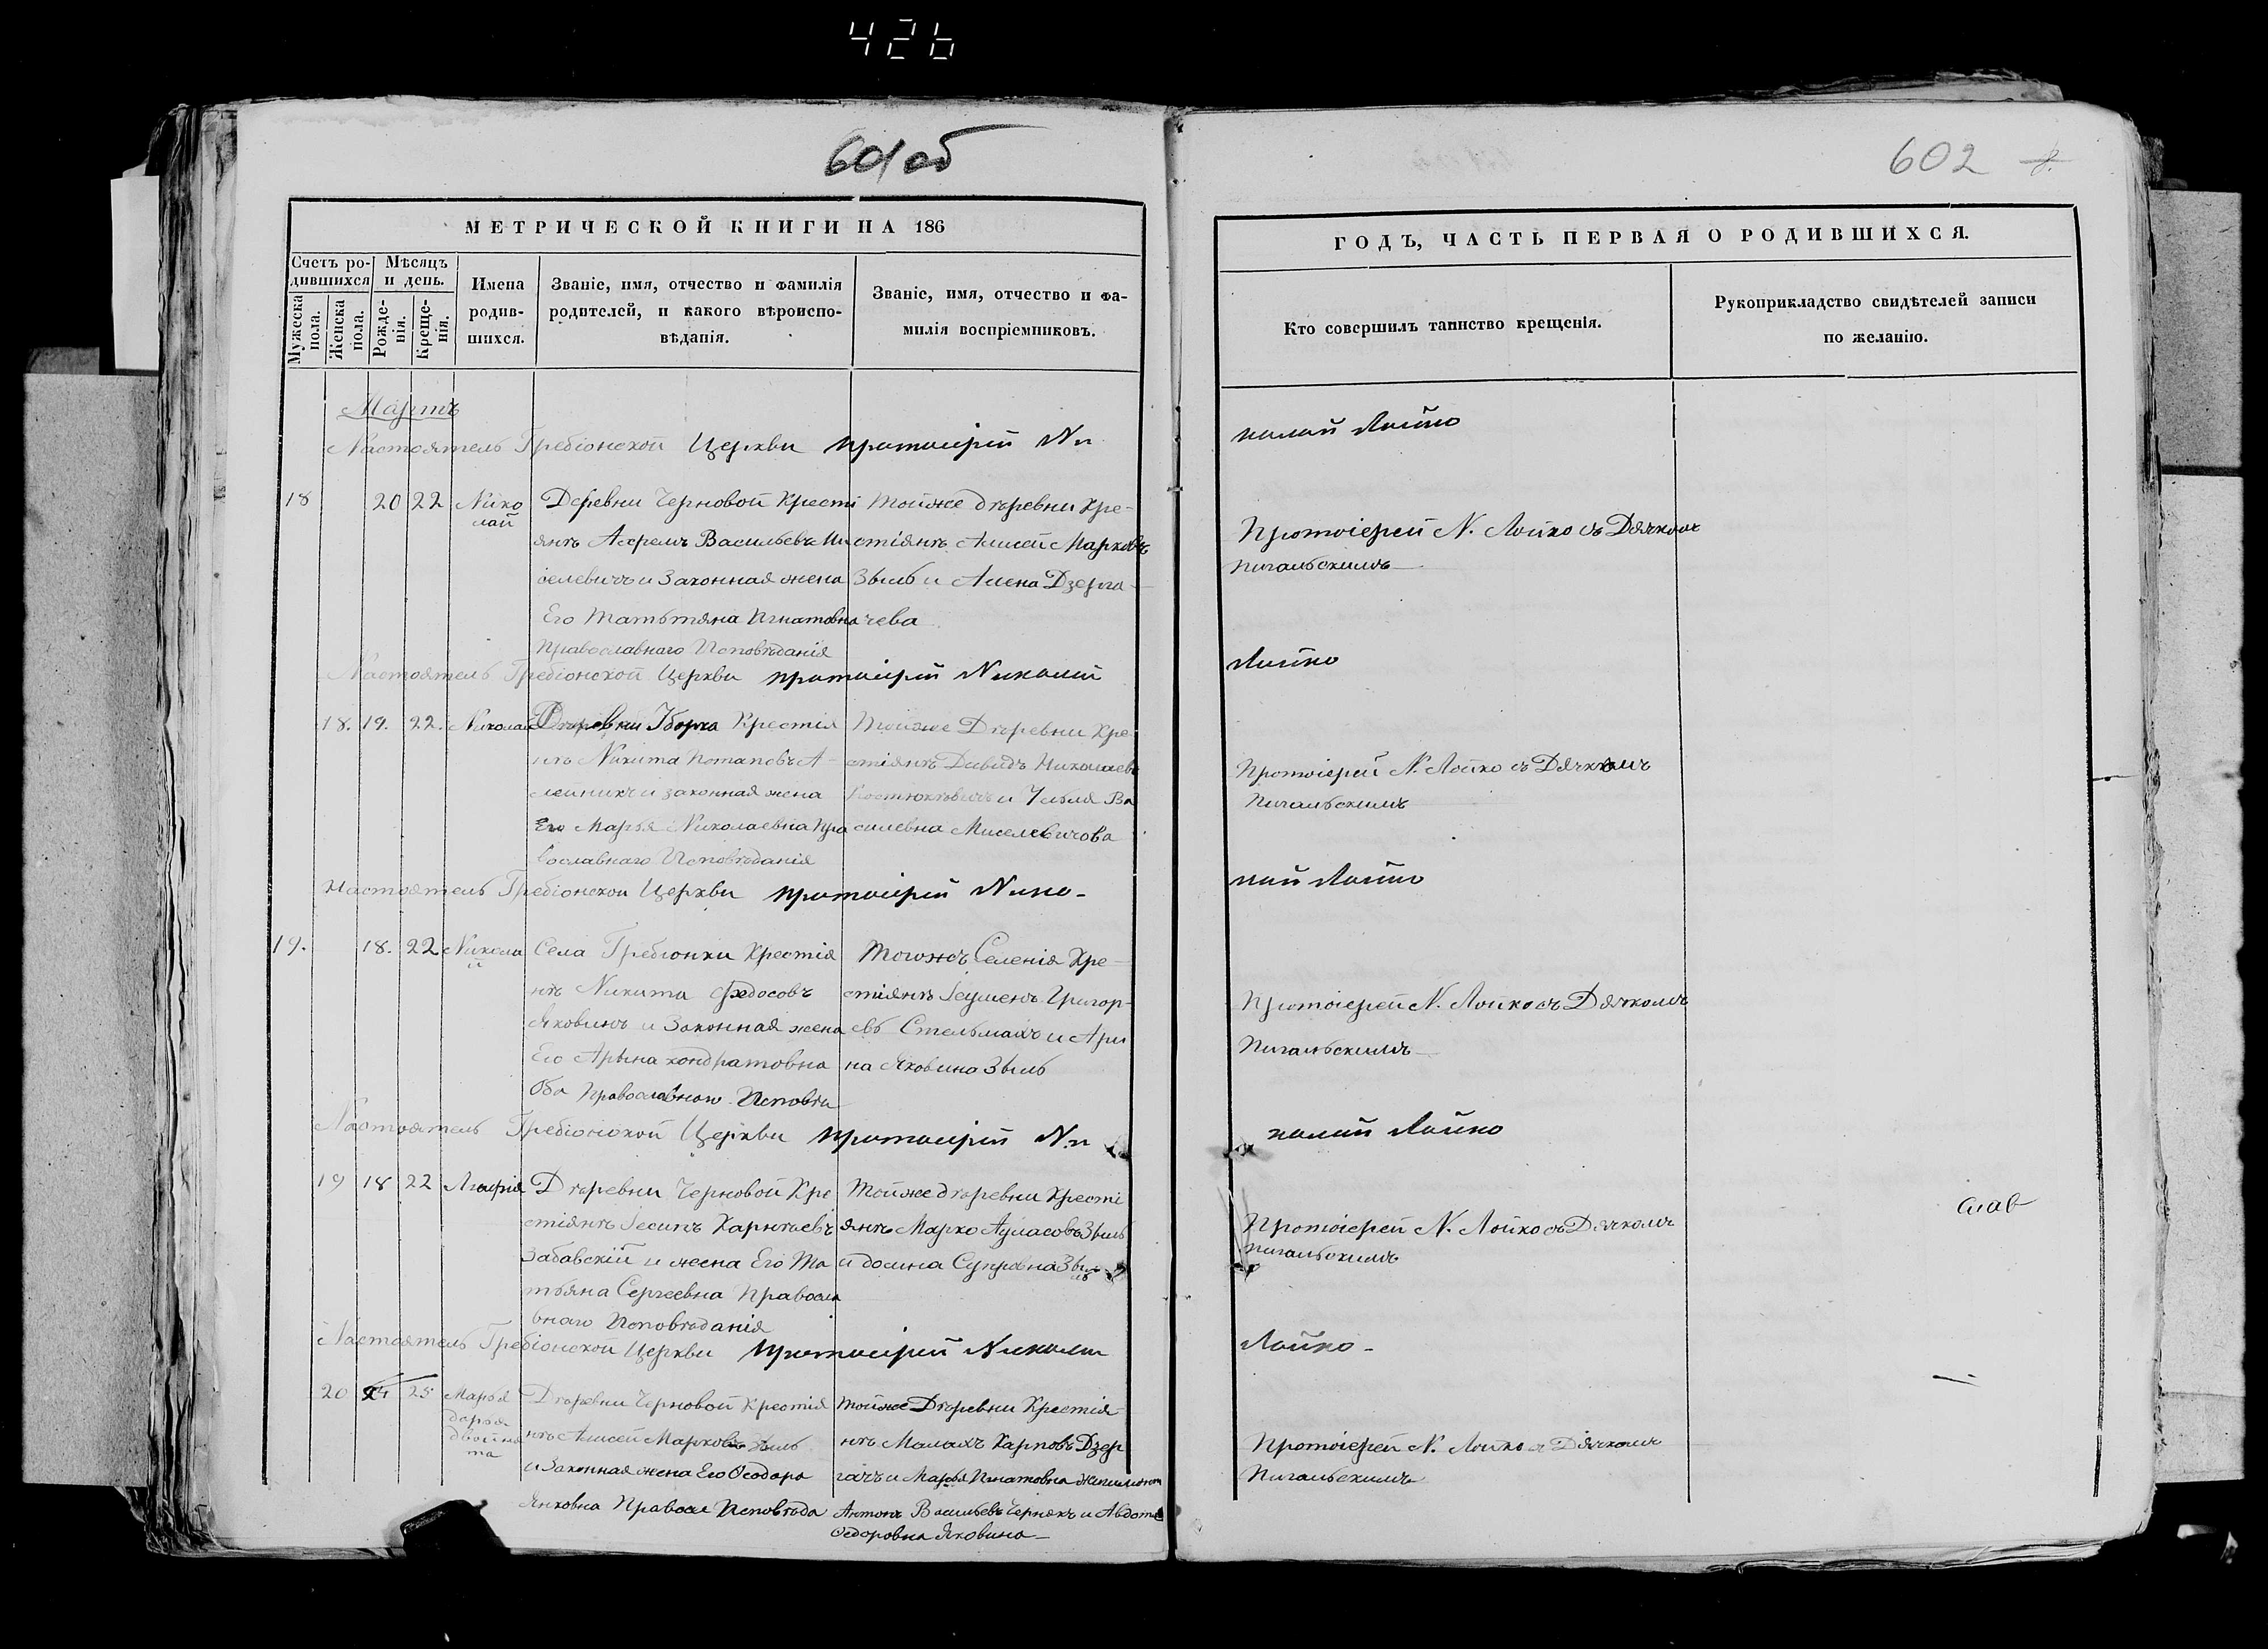 426
601 об
602
МЕТРИЧЕСКОЙ КНИГИ НА 186
Счетъ родившихся
Мужеска пола.
Женска пола.
Мѣсяцъ и день.
Рожденія.
Крещенія.
Имена родившихся.
Званіе, имя, отчество и фамилія
родителей, и какого вѣроисповѣданія.
Званіе, имя, отчество и фамилія воспріемниковъ.
ГОДЪ, ЧАСТЬ ПЕРВАЯ О РОДИВШИХСЯ.
Кто совершилъ таинство крещенія.
Рукоприкладство свидѣтелей записи
по желанію.
Мартъ
Настоятель Гребіонской Церкви протоіерей Ни
колай Лойко
18 20 22 Николай
Деревни Черновой Кресті
янъ Васильевъ Ми
селевичъ и Законная жена
Его Татьтяна Игнатовна
Православнаго Исповѣданія
Тойже дѣревни Кре-
стіянъ Алисей Марковъ
Зыль и Алена Дзерга-
чева
Протоіерей Н. Лойко съ Дячкомъ
Пигальскимъ
Настоятель Гребіонской Церкви протоіерей Николай
Лойко
18. 19. 22. Николай
Дѣревни Крестія
нъ Никита Потаповъ А-
лейникъ и законная жена
Его Марья Николаевна Пра
вославнаго Исповѣданія
Тойже Дѣревни Кре-
стіянъ Давидъ Николаевъ
и Ульля Ва
силевна Миселевичова
Протоіерей Н. Лойко съ Дячкомъ
Пигальскимъ
Настоятель Гребіонской Церкви протоіерей Нико-
лай Лойко
19. 18. 22 Никола
й
Села Гребіонки Крестія
нъ Никита Федосовъ
Яковинъ и Законная жена
Его Арына Кондратовна
Оба Православнаго Исповѣ
Тогожъ Селенія Кре-
стіянъ Григор-
евъ Стельмахъ и Ари
на Яковина Зыль
Протоіерей Н. Лойко съ Дячкомъ
Пигальскимъ
Настоятель Гребіонской Церкви протоіерей Ни
колай Лойко
19 18 22
Дѣревни Черновой Кре
стіянъ Іесипъ
Забавскій и жена Его Та
тьяна Сергеевна Правосла
внаго Исповѣданія
Тойже дѣревни Кресті
янъ Марко Зыль
Зыль
Протоіерей Н. Лойко съ Дячкомъ
Пигальскимъ
слав
Настоятель Гребіонской Церкви протоіерей Николай
Лойко
20 25 Марья
дарья
двойня
та
Дѣревни Черновой Крестія
нъ Алисей Марковъ Зыль
и Законная жена Его Ѳеодора
Янковна Правосл Исповѣда
Тойже Дѣревни Крестія-
нъ Малахъ Карповъ Дзер
гачъ и Марья Игнатовна
Антонъ Васильевъ Чернякъ и Авдотя
Ѳедоровна Яковина
Протоіерей Н. Лойко съ Дячкомъ
Пигальскимъ